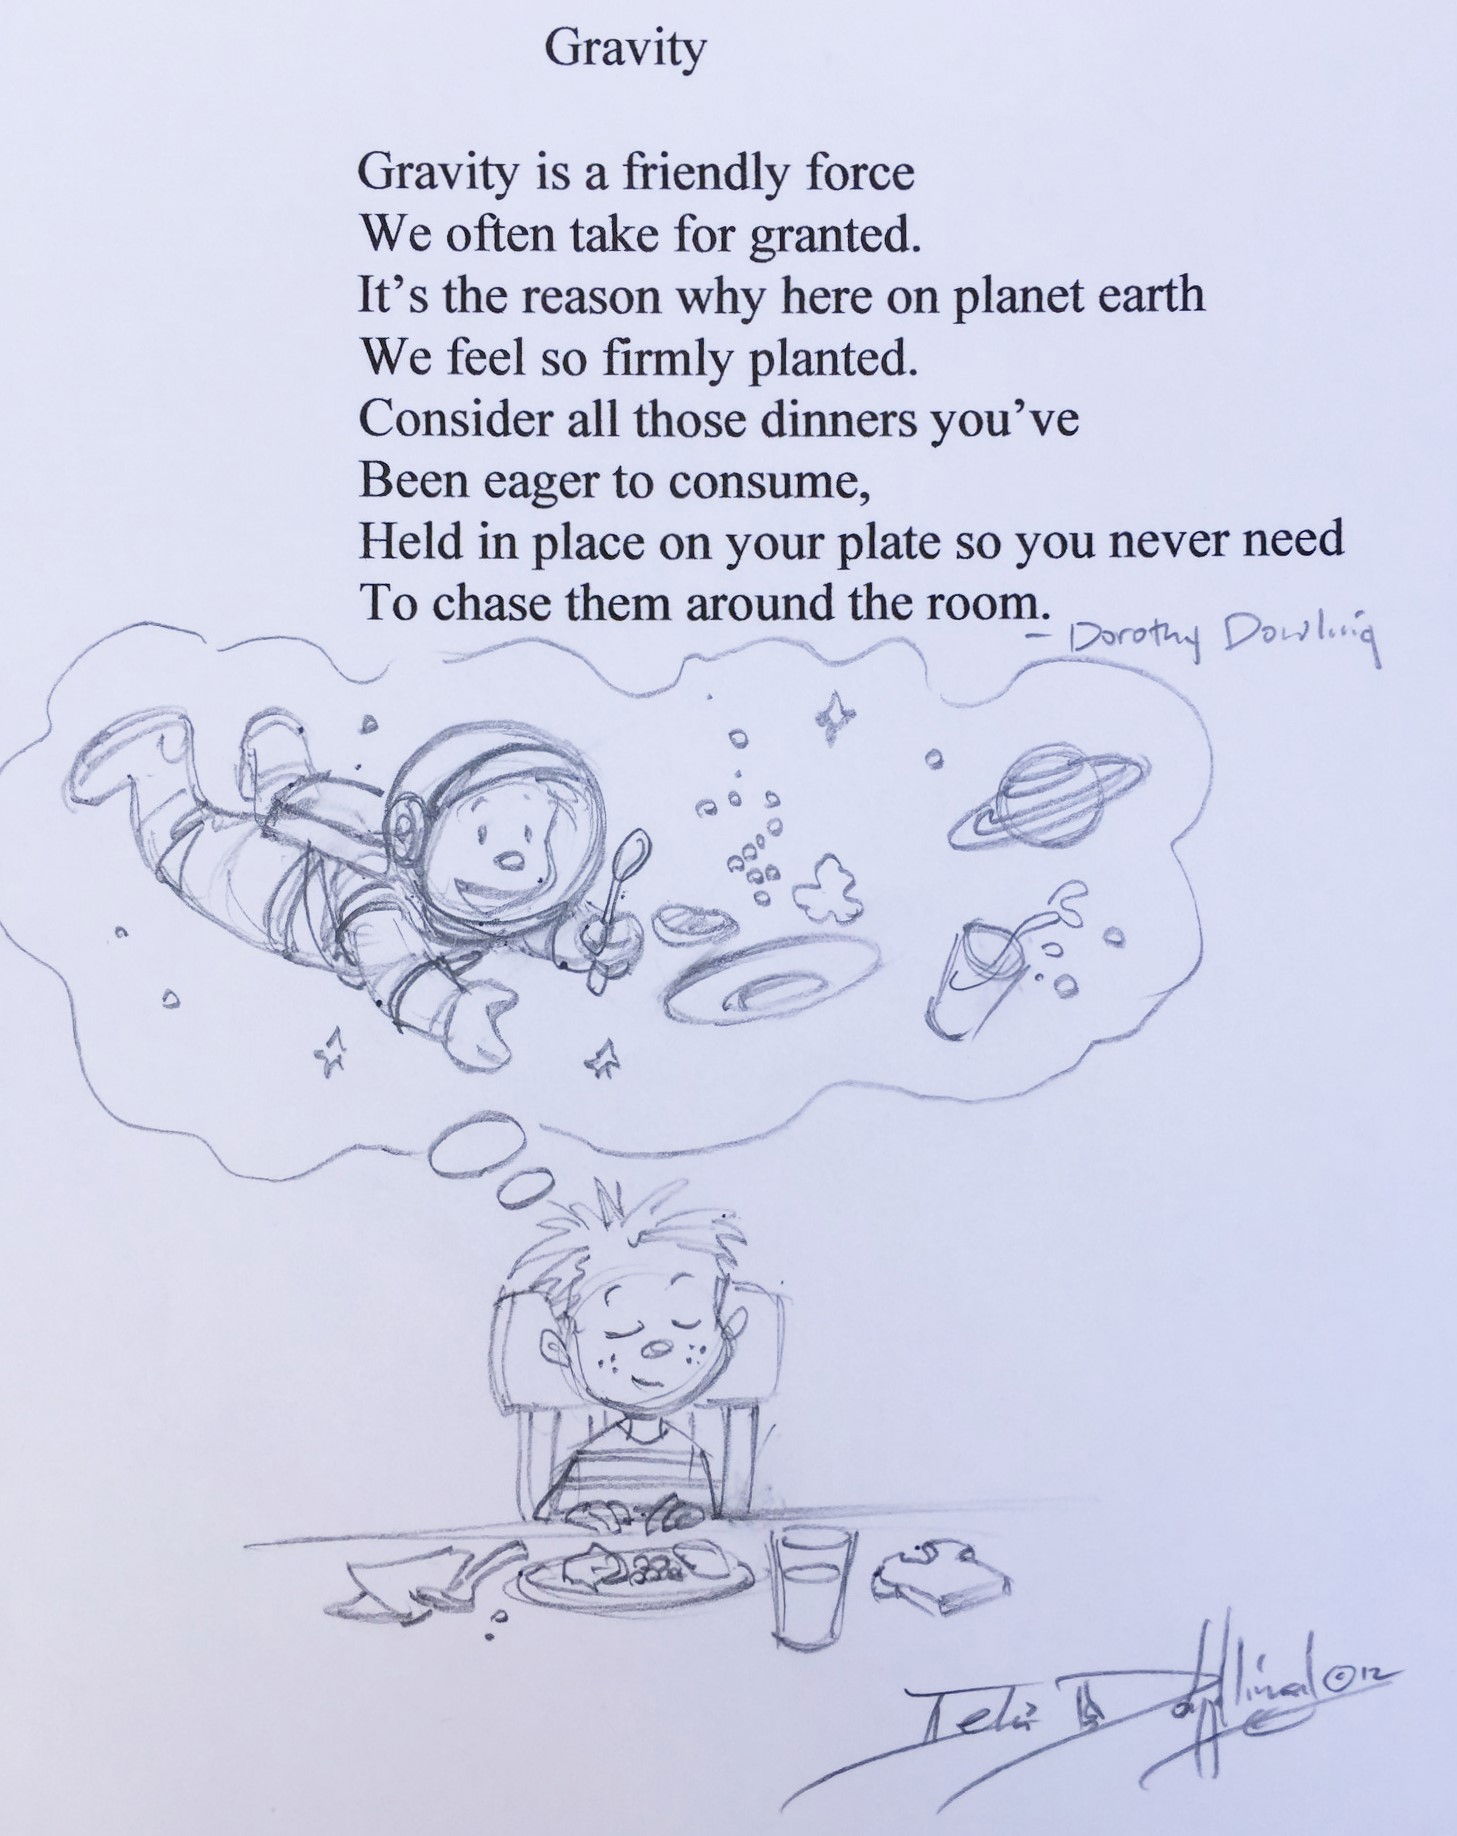 Gravity
Gravity is a friendly force
We often take for granted.
It’s the reason why here on planet earth
We feel so firmly planted.
Consider all those dinners you’ve
Been eager to consume,
Held in place on your plate so you never need
To chase them around the room.
- Dorothy Dowling
© 12